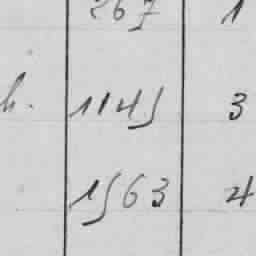 267 1
h. 1145 3
1563 4